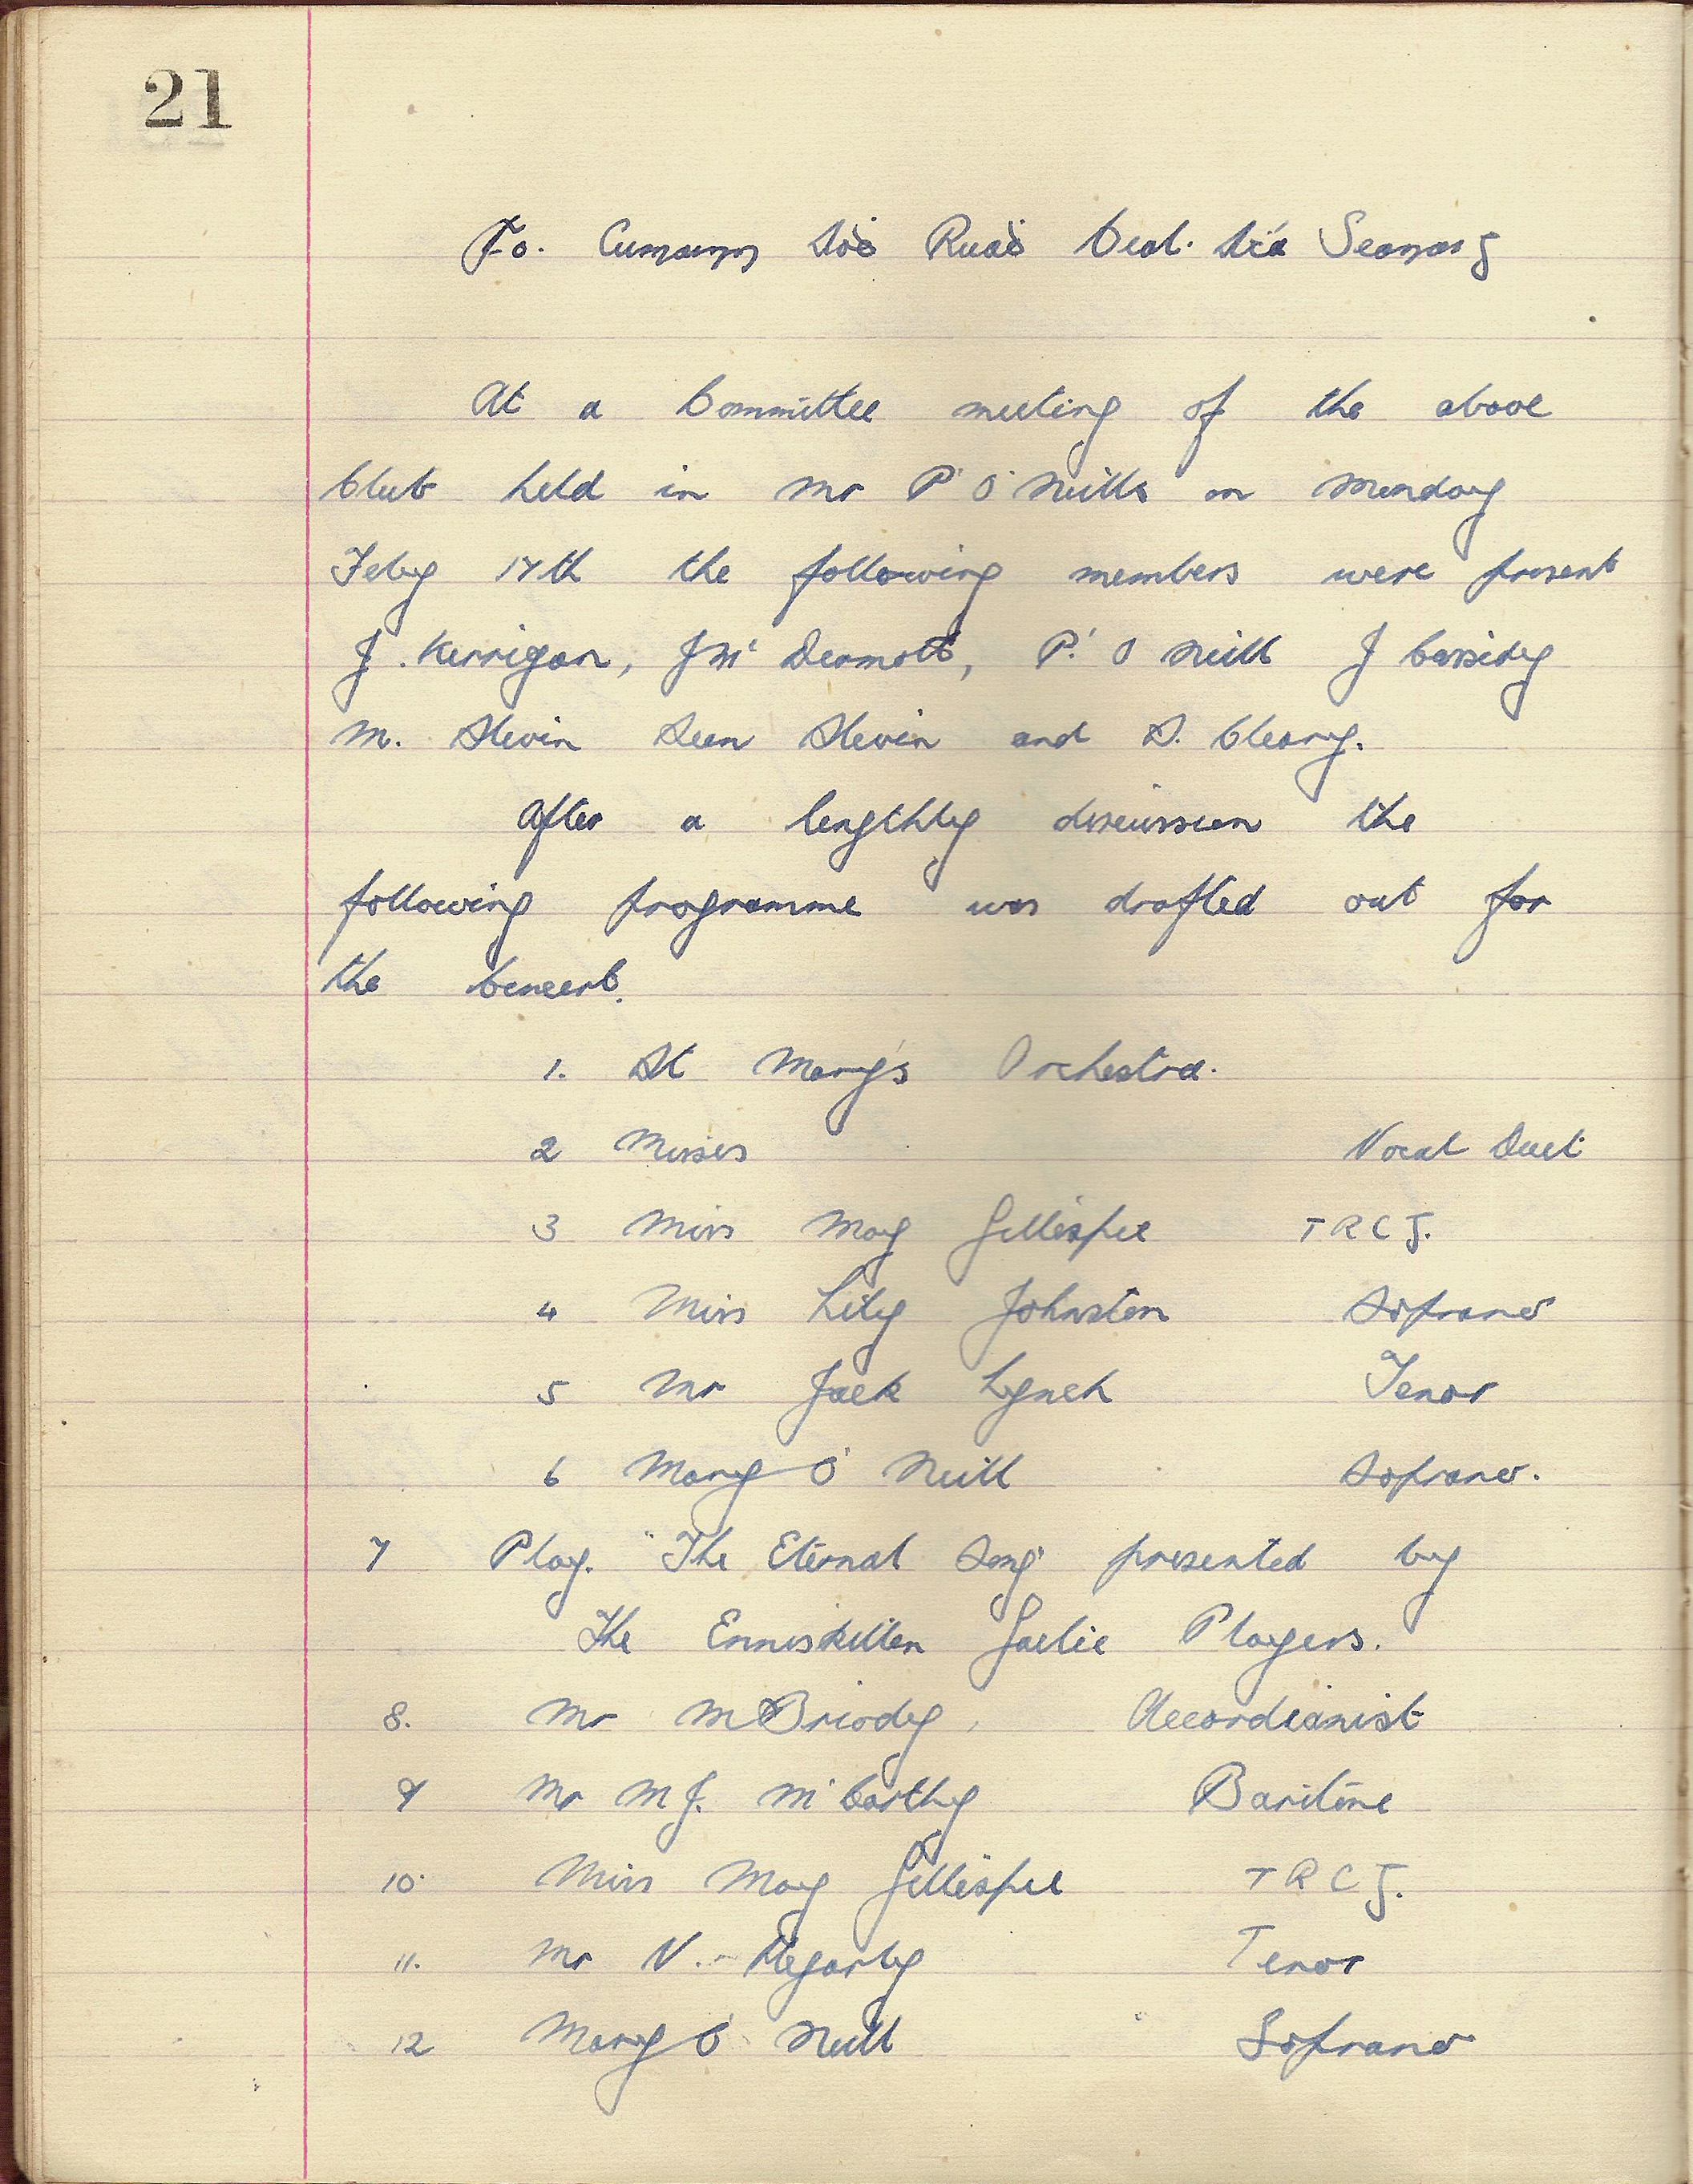 21
Cumann Aoḋ Ruaḋ Béal
At a Committee meeting of the above
Club held in Mr P O'Neills on Monday
Feby 17th the following members were present
J. Kerrigan, J Mc Dermott, P. O Neill J Cassidy
M. Slevin Sean Slevin and S. Cleary.
After a lengthly discussion the
following programme was drafted out for
the Concert.
1. St Mary's Orchestra.
2 Misses Vocal Duet
3 Miss May Gillespie T R C J.
4 Miss Lily Johnston Soprano
5 Mr Jack Lynch Tenor
6 Mary O' Neill Soprano.
7 Play. "The Eternal Song" presented by
The Enniskillen Gaelic Players.
8. Mr M Briody, Accordianist
9 Mr M J. Mc Carthy Baritone
10. Miss May Gillespie T R C J.
11. Mr V. Hegarty Tenor
12 Mary O' Neill Soprano